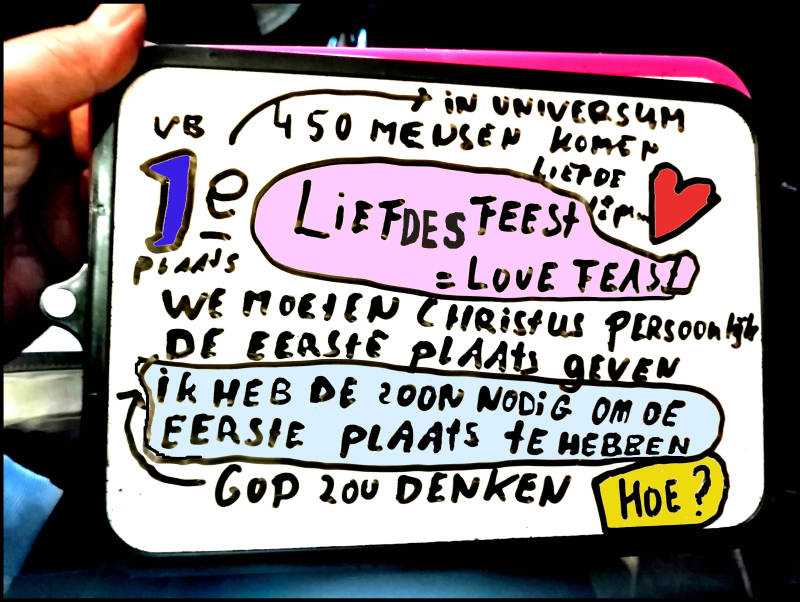 IN UNIVERSUM
VB 450 MENSEN KOMEN
LIEFDE
1e LIEFDESFEEST
PLAATS = LOVE FEAST
WE MOETEN CHRISTUS PERSOONlijk
DE EERSTE PLAATS GEVEN
IK HEB DE ZOON NODIG OM DE
EERSTE PLAATS TE HEBBEN
GOD ZOU DENKEN HOE?